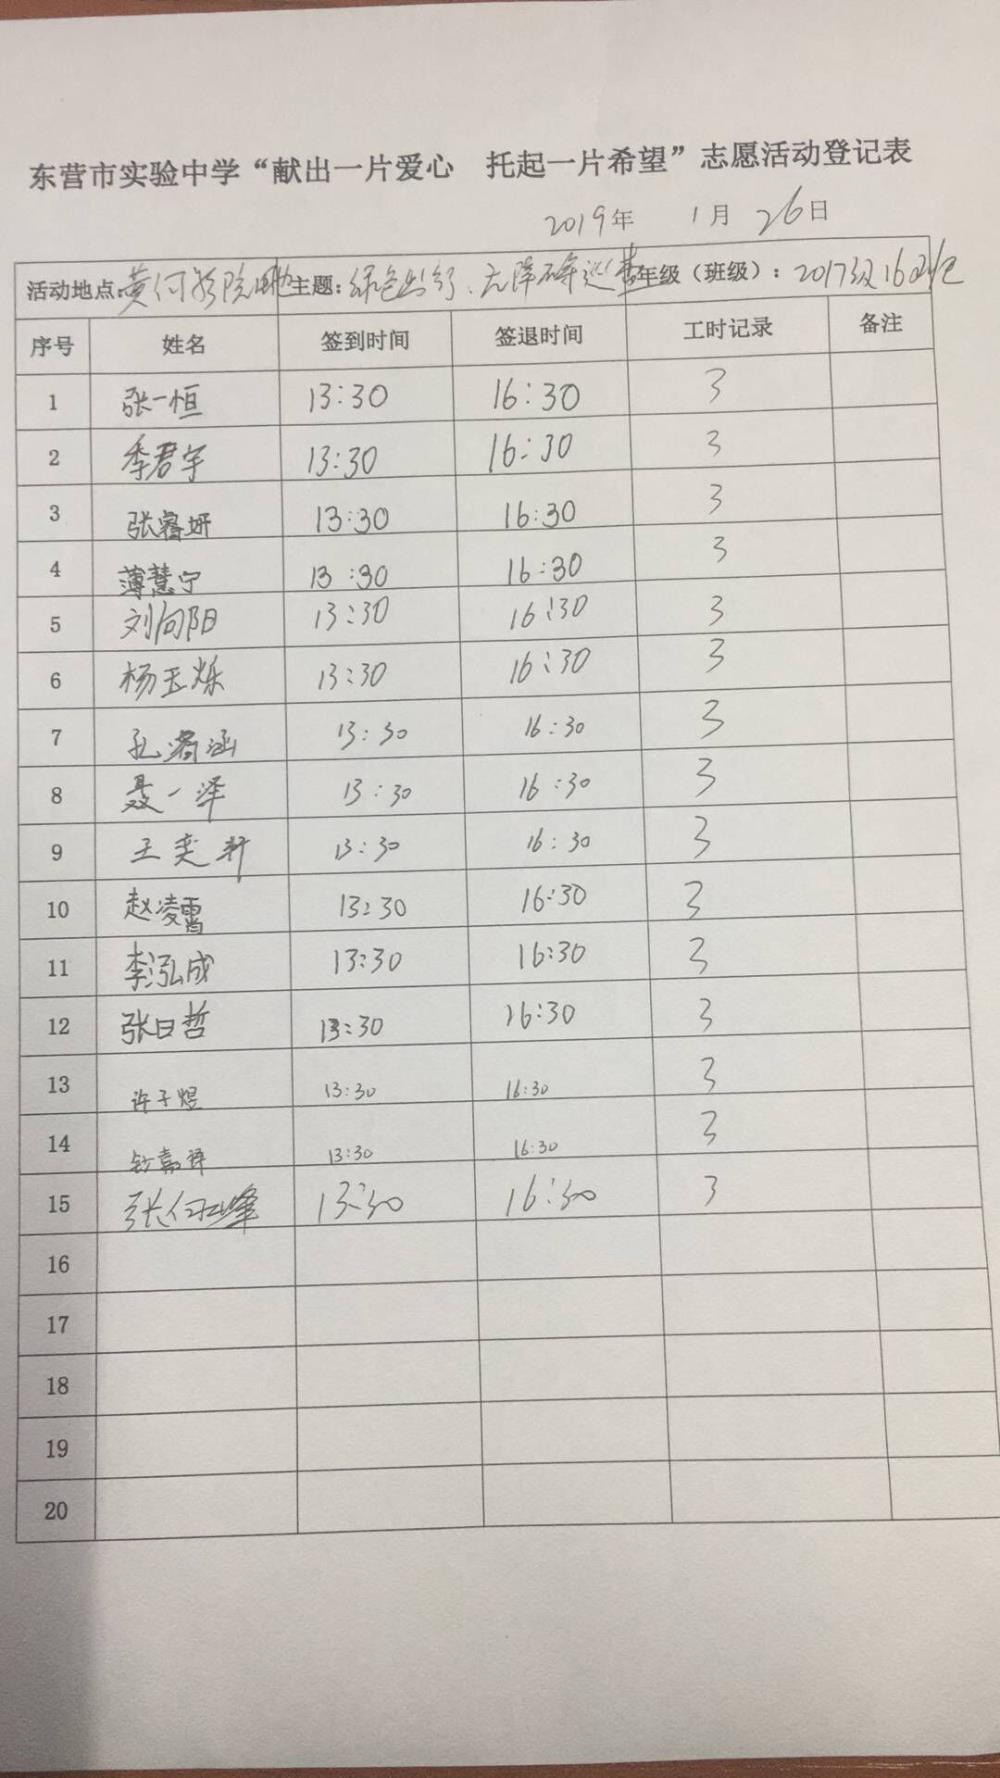 东营市实验中学“献出一片爱心 托起一片希望”志愿活动登记表
2019年 1月 26日
活动地点: 黄河 主题: 绿色出行、无障碍 年级（班级）: 2017级16
序号 姓名 签到时间 签退时间 工时记录 备注
1 张一恒 13:30 16:30 3
2 季君宇 13:30 16:30 3
3 张睿妍 13:30 16:30 3
4 薄慧宁 13:30 16:30 3
5 刘向阳 13:30 16:30 3
6 杨玉烁 13:30 16:30 3
7 孔 涵 13:30 16:30 3
8 聂一泽 13:30 16:30 3
9 王奕轩 13:30 16:30 3
10 赵凌霄 13:30 16:30 3
11 李泓成 13:30 16:30 3
12 张日哲 13:30 16:30 3
13 许子煜 13:30 16:30 3
14 嘉译 13:30 16:30 3
15 张 峰 13:30 16:30 3
16
17
18
19
20